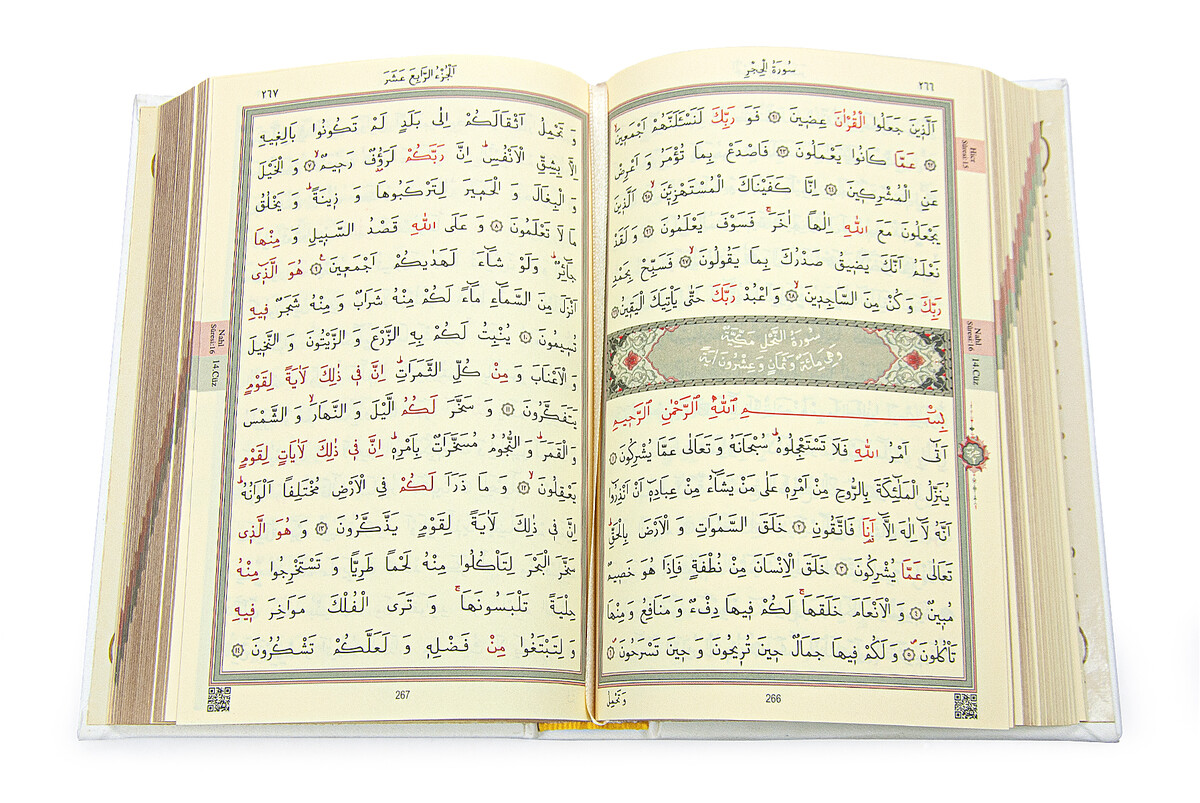 سُورَةُ الْحِجْرِ
٢٦٦
اَلَّذ۪ينَ جَعَلُوا الْقُرْاٰنَ عِض۪ينَ ﴿٩١﴾ فَوَ رَبِّكَ لَنَسْـَٔلَنَّهُمْ اَجْمَع۪ينَۙ
﴿٩٢﴾ عَمَّا كَانُوا يَعْمَلُونَ ﴿٩٣﴾ فَاصْدَعْ بِمَا تُؤْمَرُ وَ اَعْرِضْ
عَنِ الْمُشْرِك۪ينَ ﴿٩٤﴾ اِنَّا كَفَيْنَاكَ الْمُسْتَهْزِء۪ينَۙ ﴿٩٥﴾ اَلَّذ۪ينَ
يَجْعَلُونَ مَعَ اللّٰهِ اِلٰهًا اٰخَرَۚ فَسَوْفَ يَعْلَمُونَ ﴿٩٦﴾ وَ لَقَدْ
نَعْلَمُ اَنَّكَ يَض۪يقُ صَدْرُكَ بِمَا يَقُولُونَۙ ﴿٩٧﴾ فَسَبِّحْ بِحَمْدِ
رَبِّكَ وَ كُنْ مِنَ السَّاجِد۪ينَۙ ﴿٩٨﴾ وَ اعْبُدْ رَبَّكَ حَتّٰى يَأْتِيَكَ الْيَق۪ينُ ﴿٩٩﴾
سُورَةُ النَّحْلِ مَكِّيَّةٌ
وَهِىَ مِائَةٌ وَ ثَمَانٍ وَ عِشْرُونَ اٰيَةً
بِسْمِ اللّٰهِ الرَّحْمٰنِ الرَّح۪يمِ
اَتٰٓى اَمْرُ اللّٰهِ فَلَا تَسْتَعْجِلُوهُۜ سُبْحَانَهُ وَ تَعَالٰى عَمَّا يُشْرِكُونَ ﴿١﴾
يُنَزِّلُ الْمَلٰٓئِكَةَ بِالرُّوحِ مِنْ اَمْرِه۪ عَلٰى مَنْ يَشَٓاءُ مِنْ عِبَادِه۪ٓ اَنْ اَنْذِرُٓوا
اَنَّهُ لَٓا اِلٰهَ اِلَّٓا اَنَا۬ فَاتَّقُونِ ﴿٢﴾ خَلَقَ السَّمٰوَاتِ وَ الْاَرْضَ بِالْحَقِّۜ
تَعَالٰى عَمَّا يُشْرِكُونَ ﴿٣﴾ خَلَقَ الْاِنْسَانَ مِنْ نُطْفَةٍ فَاِذَا هُوَ خَص۪يمٌ
مُب۪ينٌ ﴿٤﴾ وَ الْاَنْعَامَ خَلَقَهَاۚ لَكُمْ ف۪يهَا دِفْءٌ وَ مَنَافِعُ وَ مِنْهَا
تَأْكُلُونَۖ ﴿٥﴾ وَ لَكُمْ ف۪يهَا جَمَالٌ ح۪ينَ تُر۪يحُونَ وَ ح۪ينَ تَسْرَحُونَۖ ﴿٦﴾
وَ تَحْمِلُ
266
Hicr
Sûresi:15
Nahl
Sûresi:16
14.Cüz
اَلْجُزْءُ الرَّابِعَ عَشَرَ
٢٦٧
وَ تَحْمِلُ اَثْقَالَكُمْ اِلٰى بَلَدٍ لَمْ تَكُونُوا بَالِغ۪يهِ
اِلَّا بِشِقِّ الْاَنْفُسِۜ اِنَّ رَبَّكُمْ لَرَؤُ۫فٌ رَح۪يمٌۙ ﴿٧﴾ وَ الْخَيْلَ
وَ الْبِغَالَ وَ الْحَم۪يرَ لِتَرْكَبُوهَا وَ ز۪ينَةًۜ وَ يَخْلُقُ
مَا لَا تَعْلَمُونَ ﴿٨﴾ وَ عَلَى اللّٰهِ قَصْدُ السَّب۪يلِ وَ مِنْهَا
جَٓائِرٌۜ وَلَوْ شَٓاءَ لَهَدٰيكُمْ اَجْمَع۪ينَ۟ ﴿٩﴾ هُوَ الَّذ۪ٓى
اَنْزَلَ مِنَ السَّمَٓاءِ مَٓاءً لَكُمْ مِنْهُ شَرَابٌ وَ مِنْهُ شَجَرٌ ف۪يهِ
تُس۪يمُونَ ﴿١٠﴾ يُنْبِتُ لَكُمْ بِهِ الزَّرْعَ وَ الزَّيْتُونَ وَ النَّخ۪يلَ
وَ الْاَعْنَابَ وَ مِنْ كُلِّ الثَّمَرَاتِۜ اِنَّ ف۪ى ذٰلِكَ لَاٰيَةً لِقَوْمٍ
يَتَفَكَّرُونَ ﴿١١﴾ وَ سَخَّرَ لَكُمُ الَّيْلَ وَ النَّهَارَۙ وَ الشَّمْسَ
وَ الْقَمَرَۜ وَ النُّجُومُ مُسَخَّرَاتٌ بِاَمْرِه۪ۜ اِنَّ ف۪ى ذٰلِكَ لَاٰيَاتٍ لِقَوْمٍ
يَعْقِلُونَۙ ﴿١٢﴾ وَ مَا ذَرَاَ لَكُمْ فِى الْاَرْضِ مُخْتَلِفًا اَلْوَانُهُۜ
اِنَّ ف۪ى ذٰلِكَ لَاٰيَةً لِقَوْمٍ يَذَّكَّرُونَ ﴿١٣﴾ وَ هُوَ الَّذ۪ى
سَخَّرَ الْبَحْرَ لِتَأْكُلُوا مِنْهُ لَحْمًا طَرِيًّا وَ تَسْتَخْرِجُوا مِنْهُ
حِلْيَةً تَلْبَسُونَهَاۚ وَ تَرَى الْفُلْكَ مَوَاخِرَ ف۪يهِ
وَ لِتَبْتَغُوا مِنْ فَضْلِه۪ وَ لَعَلَّكُمْ تَشْكُرُونَ ﴿١٤﴾
267
Nahl
Sûresi:16
14.Cüz